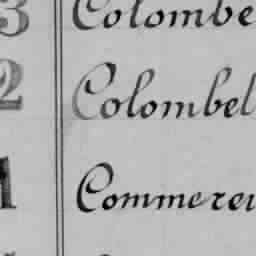 3 Colombe
2 Colombel
1 Commerei